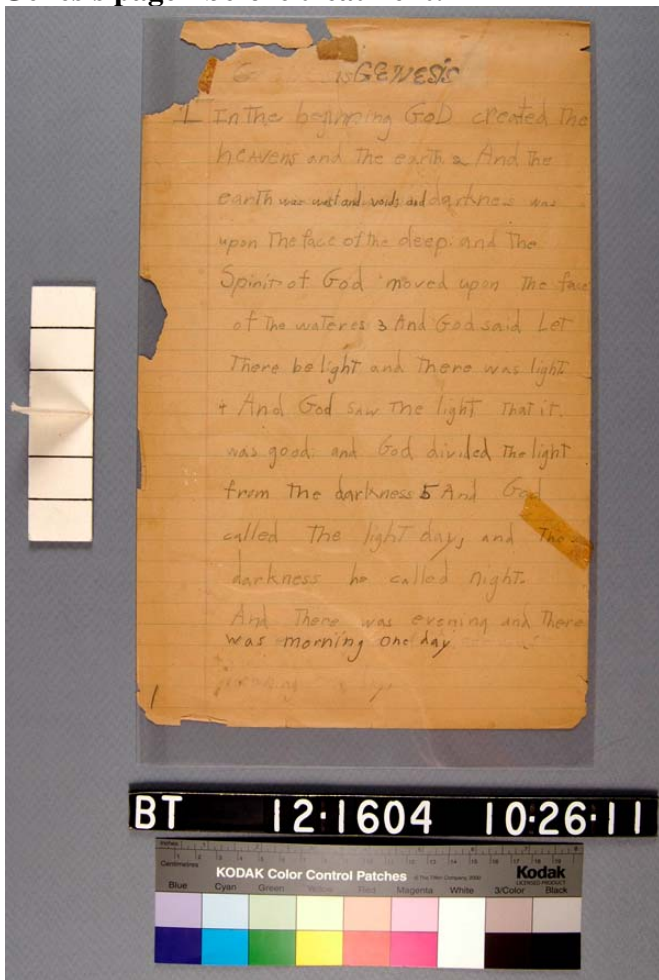 G is GENESIS
1 In The beginning GoD created The
heavens and The earth 2 And The
earth was wast and voids and darkness was
upon The face of the deep: and The
Spirit of God moved upon The face
of The wateres 3 And God said Let
There be light and There was light.
4 And God saw The light That it.
was good: and God divided The light
from The darkness 5 And God
called The light day, and The
darkness he called night.
And There was evening and There
was morning one day
1
BT 12·1604 10·26·11
Inches
Centimetres
KODAK Color Control Patches
Kodak
LICENSED PRODUCT
Blue Cyan Green Yellow Red Magenta White 3/Color Black